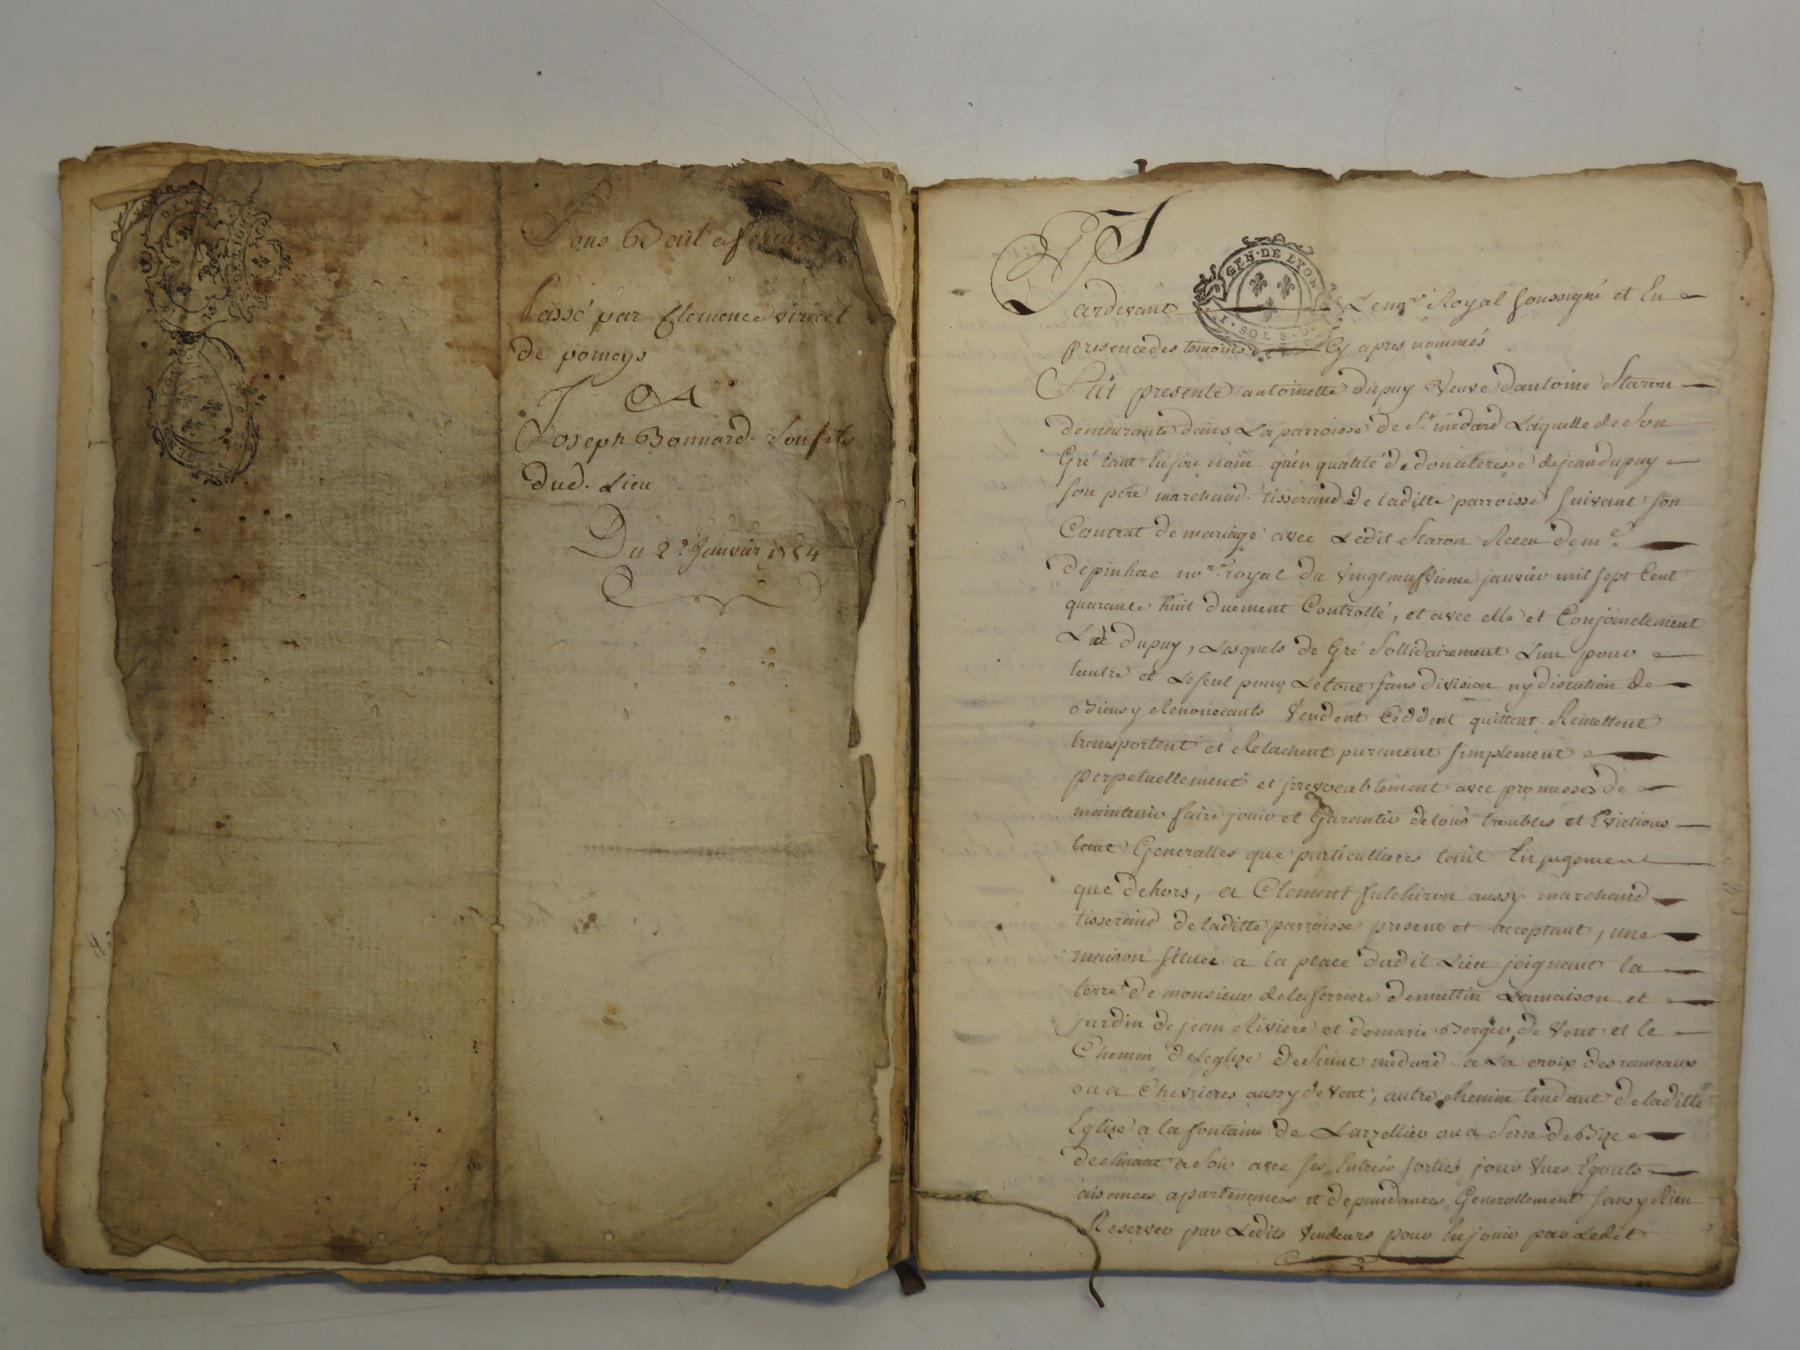 Sous Bail a ferme
Passé par Clemence viricel
de pomeys
A
Joseph Bonnard Son fils
dud. Lieu
Du 2e. Janvier 1754
GEN. DE LYON
SOLS
Pardevant Le nore. Royal soussigné et En
presence des temoins Cy apres nommés
Fut presente antoinette dupuy Veuve d'antoine Staron
demeurante dans La parroisse de St. medard Laquelle de Son
Gré tant En son nom qu'en qualité de donateresse de jean dupuy
son pere marchand tisserand de laditte parroisse suivant son
Contrat de mariage avec Ledit Staron Receu de me.
depinhac nore. royal du Vingt neufvieme janvier mil sept Cent
quarante huit duement Controllé, et avec elle et Conjointement
Led. dupuy, Lesquels de Gré Sollidairement L'un pour
lautre et Le seul pour Le tout sans division ny discution de
Biens y Renoncants Vendent Ceddent quittent Remettent
transportent et Relachent purement simplement
perpetuellement et jrrevocablement avec promesses de
maintenir faire jouir et Garantir de tous troubles et Evictions
tant Generalles que particullieres tant En jugement
que dehors, a Clement fulchiron aussy marchand
tisserand de laditte parroisse present et acceptant, une
maison situee a la place dudit Lieu joignant la
terre de monsieur de la ferriere de mattin La maison et
jardin de jean Riviere et de marie Berger, de Vent et le
Chemin de Leglize de Saint medard a La croix des rameaux
ou a Chevrieres aussy de Vent, autre chemin tendant de laditte
Eglize a la fontaine de Larzellier ou a Serre de Bize
declinant a Soir avec ses Entrées sorties jours Vues Egouts
aisances apartenances et dependances Generallement sans y Rien
Reserver par Ledits Vendeurs pour En jouir par Ledit